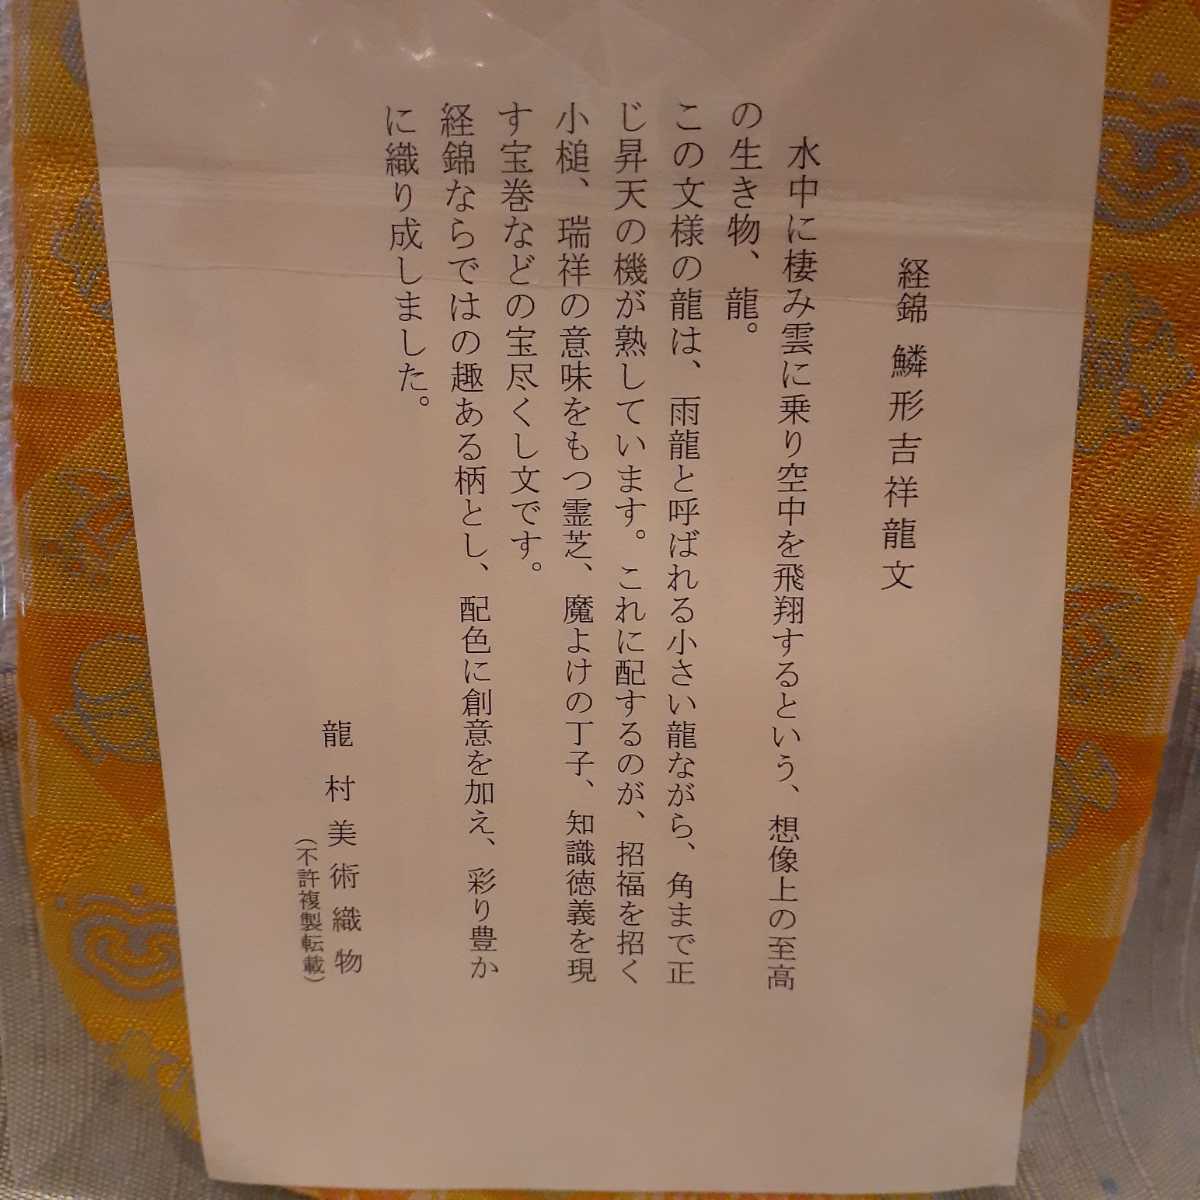 経錦 鱗形吉祥龍文
水中に棲み雲に乗り空中を飛翔するという、想像上の至高
の生き物、龍。
この文様の龍は、雨龍と呼ばれる小さい龍ながら、角まで正
じ昇天の機が熟しています。これに配するのが、招福を招く
小槌、瑞祥の意味をもつ霊芝、魔よけの丁子、知識徳義を現
す宝巻などの宝尽くし文です。
経錦ならではの趣ある柄とし、配色に創意を加え、彩り豊か
に織り成しました。
龍村美術織物
（不許複製転載）